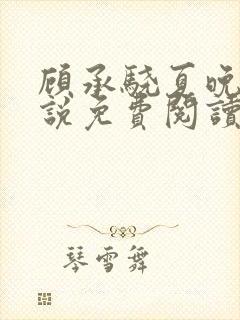 顾承骁夏晚
說免費閱讀
琴雪舞